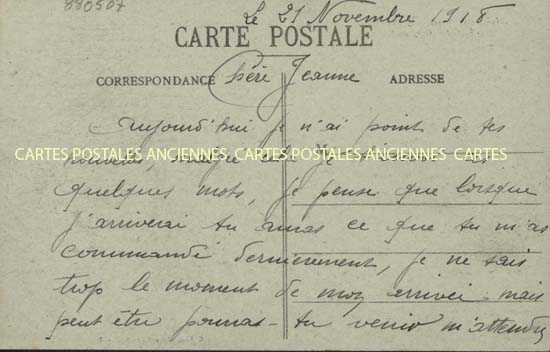 880507
Le 21 Novembre 1918
CARTE POSTALE
CORRESPONDANCE Chère Jeanne ADRESSE
Aujourd'hui je n'ai point de tes
malgré
CARTES POSTALES ANCIENNES CARTES POSTALES ANCIENNES CARTES
quelques mots, je pense que lorsque
j'arriverai tu auras ce que tu m'as
commandé dernièrement, je ne sais
trop le moment de mon arrivée mais
peut être pourras-tu venir m'attendre